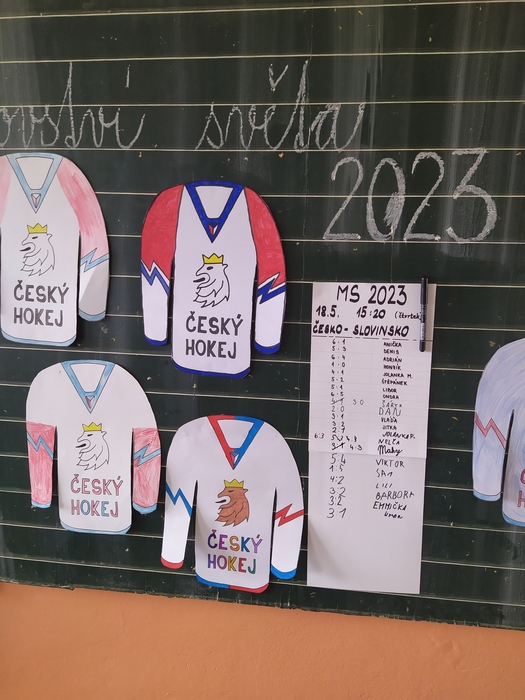 ovství světa
2023
ČESKÝ
HOKEJ
ČESKÝ
HOKEJ
ČESKÝ
HOKEJ
ČESKÝ
HOKEJ
MS 2023
18.5. 15:20 (čtvrtek)
ČESKO - SLOVINSKO
6:1 ANIČKA
5:3 DENIS
6:4 ADRIÁN
1:0 HONZÍK
4:1 JOLANKA M.
5:2 ŠTĚPÁNEK
6:1 LIBOR
6:5 ONDRA
3:0 ŠÁRKA
2:0 DAN
3:1 VLASŤA
3:2 JITKA
2:1 JOLANKA P.
6:3 NELČA
4:3 Maky
5:4 VIKTOR
1:5 SÁŇ
4:2 LILI
3:2 BARBORA
3:2 EMMIČKA
3:1